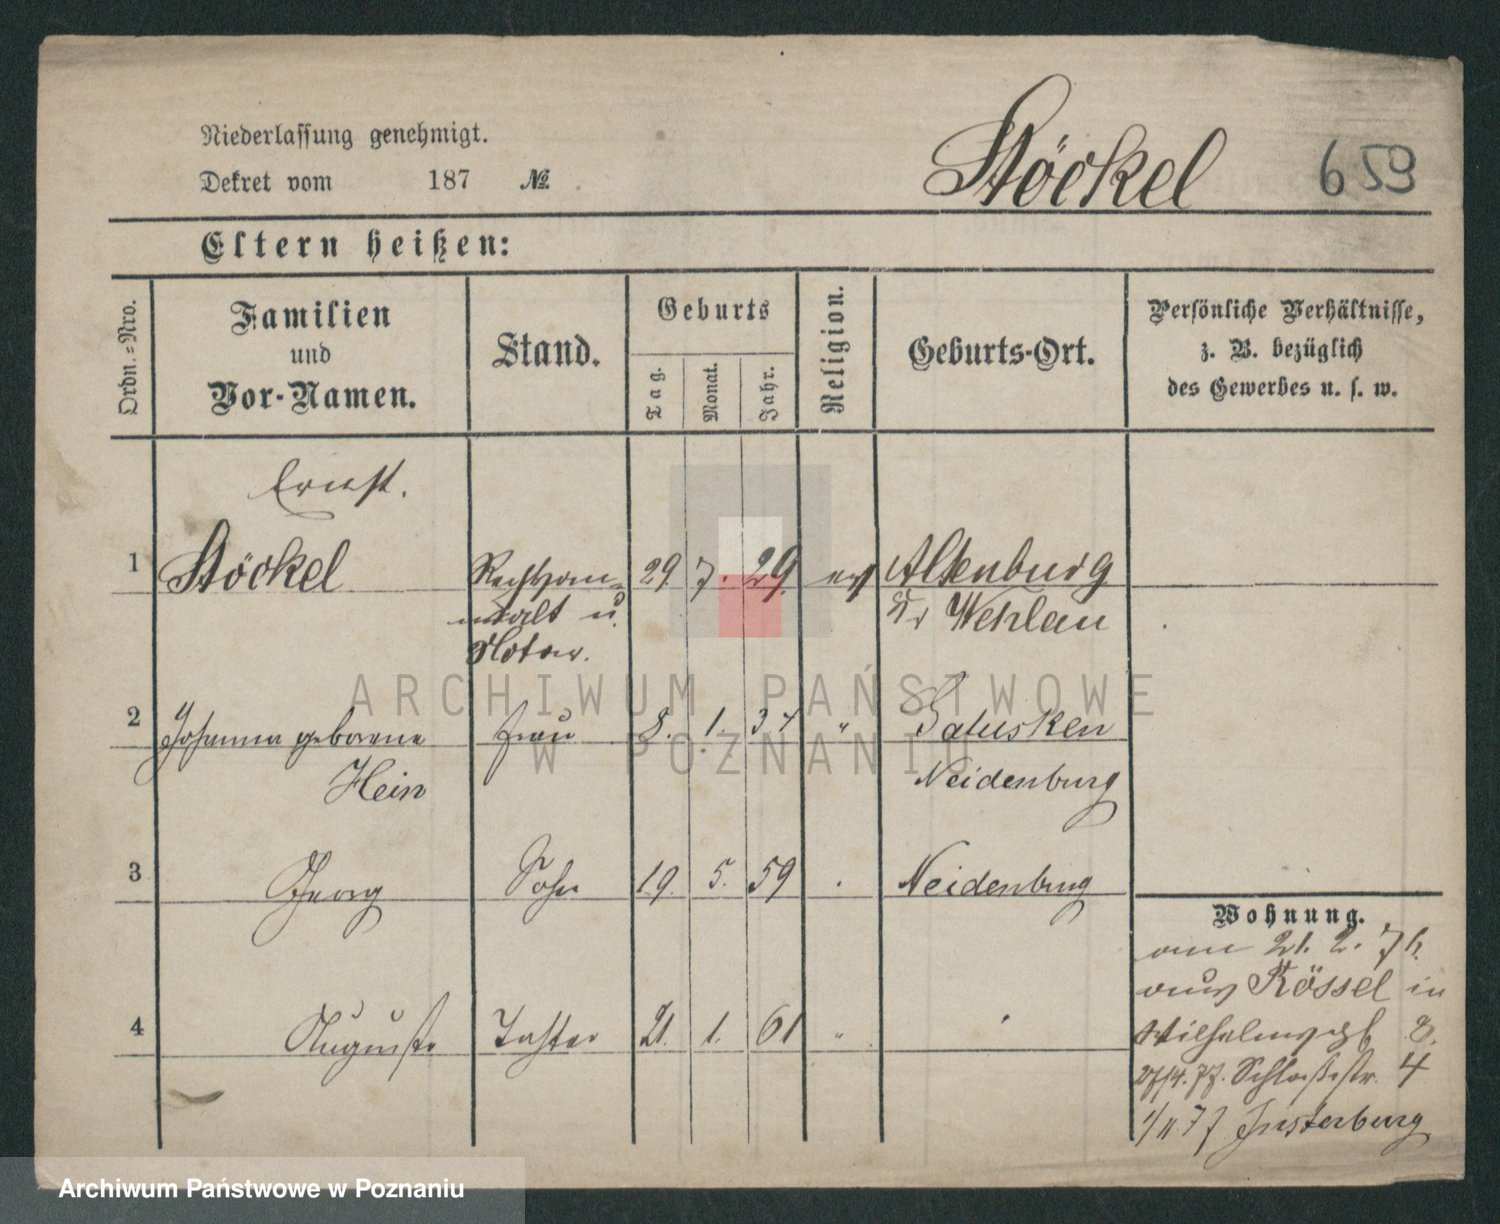 Niederlassung genehmigt.
Dekret vom 187 №
Stöckel
659
Eltern heißen:
Ordn.=Nro.
Familien
und
Vor-Namen.
Stand.
Geburts
Tag.
Monat.
Jahr.
Religion.
Geburts-Ort.
Persönliche Verhältnisse,
z. B. bezüglich
des Gewerbes u. s. w.
Ernst.
1 Stöckel Rechtsan= 29 7. 29. ev Altenburg
walt u. Kr Wehlau
Notar.
2 Johanna geborene Frau 8. 1. 37 " Salusken
Hein Neidenburg
3 Georg Sohn 19. 5. 59 Neidenburg
4 Auguste Tochter 21. 1. 61 "
Wohnung.
am 21. 2. 76.
aus Rössel in
Wilhelmspl 8.
27/4. 77. Schloßstr. 4
1/11. 77 Insterburg
ARCHIWUM PAŃSTWOWE
W POZNANIU
Archiwum Państwowe w Poznaniu